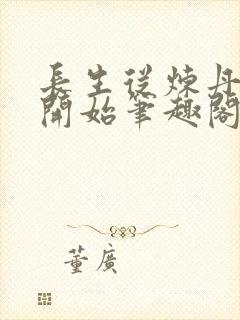 長生從煉丹
開始筆趣閣
董廣